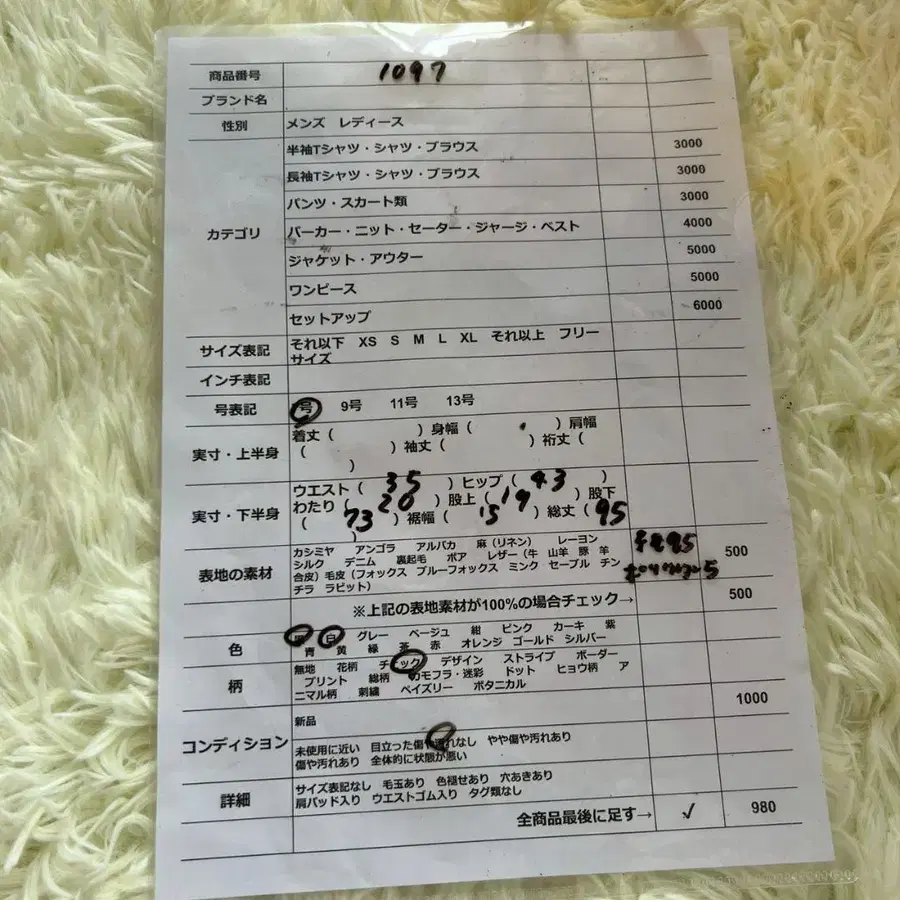 商品番号 1097
ブランド名
性別 メンズ レディース
カテゴリ
半袖Tシャツ・シャツ・ブラウス 3000
長袖Tシャツ・シャツ・ブラウス 3000
パンツ・スカート類 3000
パーカー・ニット・セーター・ジャージ・ベスト 4000
ジャケット・アウター 5000
ワンピース 5000
セットアップ 6000
サイズ表記 それ以下 XS S M L XL それ以上 フリー
サイズ
インチ表記
号表記 号 9号 11号 13号
実寸・上半身 着丈( )身幅( )肩幅
( )袖丈( )裄丈(
)
実寸・下半身 ウエスト( 35 )ヒップ( 43 )
わたり( 20 )股上( 19 )股下
( 73 )裾幅( 15 )総丈( 95
)
表地の素材 カシミヤ アンゴラ アルパカ 麻(リネン) レーヨン
シルク デニム 裏起毛 ボア レザー(牛 山羊 豚 羊
合皮)毛皮(フォックス ブルーフォックス ミンク セーブル チン
チラ ラビット)
95 500
5
※上記の表地素材が100%の場合チェック→ 500
色 黒 白 グレー ベージュ 紺 ピンク カーキ 紫
青 黄 緑 茶 赤 オレンジ ゴールド シルバー
柄 無地 花柄 チェック デザイン ストライプ ボーダー
プリント 総柄 カモフラ・迷彩 ドット ヒョウ柄 ア
ニマル柄 刺繍 ペイズリー ボタニカル
コンディション 新品 1000
未使用に近い 目立った傷や汚れなし やや傷や汚れあり
傷や汚れあり 全体的に状態が悪い
詳細 サイズ表記なし 毛玉あり 色褪せあり 穴あきあり
肩パッド入り ウエストゴム入り タグ類なし
全商品最後に足す→ ✓ 980